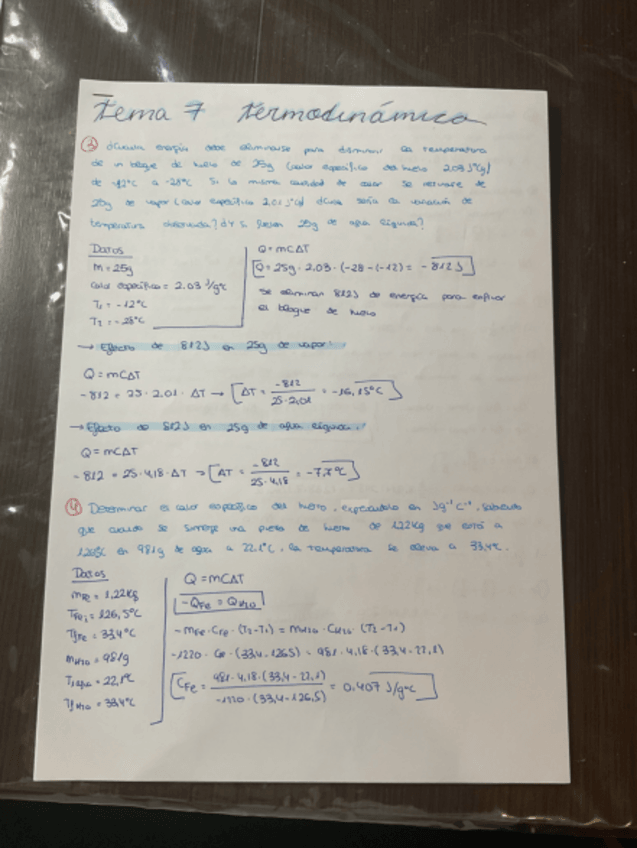 Tema 7 Termodinámica
③ ¿Cuánta energía debe eliminarse para disminuir la temperatura
de un bloque de hielo de 25g (calor específico del hielo 2.03 J°C/g)
de -12°C a -28°C. Si la misma cantidad de calor se remueve de
25g de vapor (calor específico 2.01 J°C/g) ¿Cuál sería la variación de
temperatura observada? ¿Y si fuesen 25g de agua líquida?
Datos
m = 25g
Calor específico = 2.03 J/g°C
T1 = -12°C
T2 = -28°C
Q = mCΔT
Q = 25g · 2.03 · (-28 - (-12) = - 812J
Se eliminan 812J de energía para enfriar
el bloque de hielo
→ Efecto de 812J en 25g de vapor:
Q = mCΔT
-812 = 25 · 2.01 · ΔT → ΔT = -812 / 25 · 2,01 = -16,15°C
→ Efecto de 812J en 25g de agua líquida:
Q = mCΔT
-812 = 25 · 4,18 · ΔT → ΔT = -812 / 25 · 4,18 = -7,7°C
④ Determinar el calor específico del hierro, expresándolo en Jg⁻¹C⁻¹, sabiendo
que cuando se sumerge una pieza de hierro de 1.22kg que está a
126,5C en 981g de agua a 22.1°C, la temperatura se eleva a 33,4°C.
Datos
mFe = 1,22kg
TFei = 126,5°C
TfFe = 33,4°C
mH2O = 981g
Tiagua = 22,1°C
TfH2O = 33,4°C
Q = mCΔT
-QFe = QH2O
-mFe · CFe · (T2-T1) = mH2O · CH2O · (T2-T1)
-1220 · CFe · (33,4-126,5) = 981 · 4,18 · (33,4-22,1)
CFe = 981 · 4,18 · (33,4 - 22,1) / -1220 · (33,4-126,5) = 0.407 J/g°C